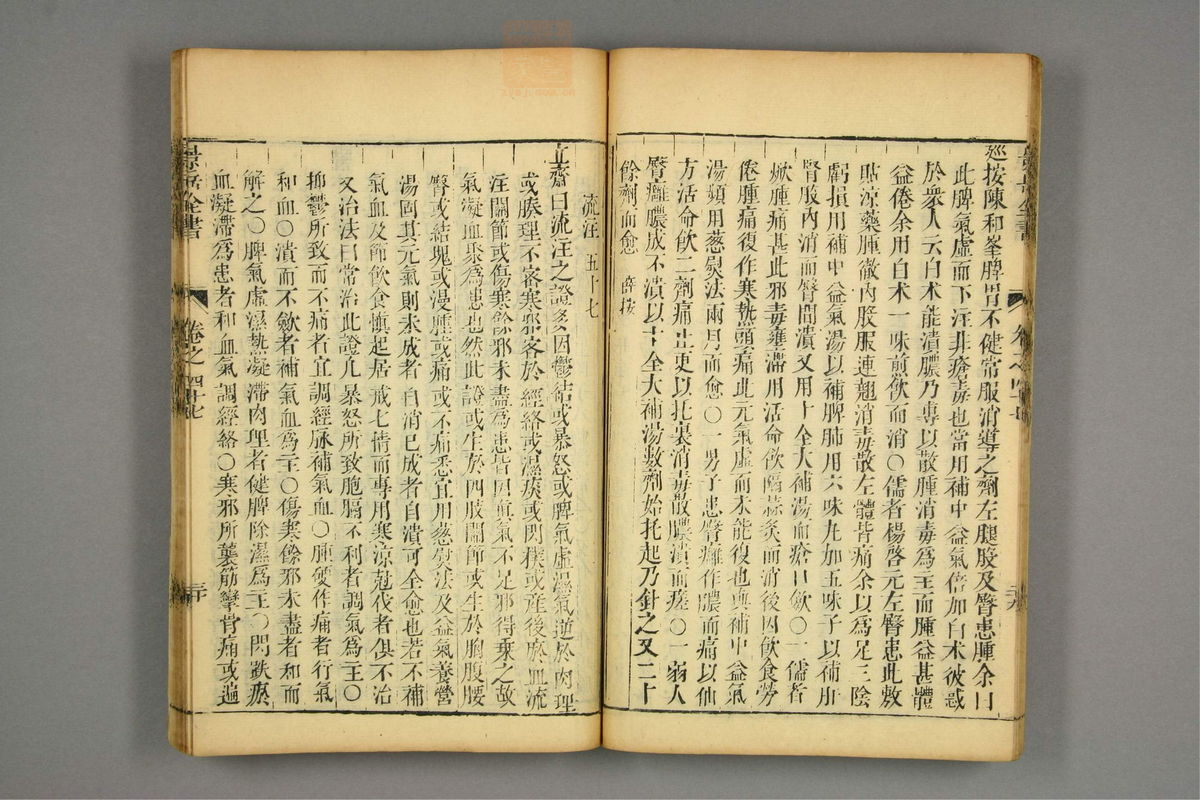 景岳全書
卷之四十七
巡按陳和峯脾胃不健常服消導之劑左腿股及臀患腫余曰
此脾氣虛而下注非瘡毒也當用補中益氣倍加白术彼惑
於衆人云白术能潰膿乃專以散腫消毒爲主而腫益甚體
益倦余用白术一味煎飲而消○儒者楊啓元左臀患此敷
貼涼藥腫徹內股服連翹消毒散左體皆痛余以爲足三陰
虧損用補中益氣湯以補脾肺用六味丸加五味子以補肝
腎股內消而臀間潰又用十全大補湯而瘡口斂○一儒者
焮腫痛甚此邪毒壅滯用活命飲隔蒜灸而消後因飲食勞
倦腫痛復作寒熱頭痛此元氣虛而未能復也與補中益氣
湯頻用葱熨法兩月而愈○一男子患臀癰作膿而痛以仙
方活命飲二劑痛止更以托裏消毒散膿潰而瘥○一弱人
臀癰膿成不潰以十全大補湯數劑始托起乃針之又二十
餘劑而愈 薛按
流注 五十七
立齋曰流注之證多因鬱結或暴怒或脾氣虛濕氣逆於肉理
或腠理不密寒邪客於經絡或濕痰或閃撲或產後瘀血流
注關節或傷寒餘邪未盡爲患皆因眞氣不足邪得乘之故
氣凝血聚爲患也然此證或生於四肢關節或生於胸腹腰
臀或結塊或漫腫或痛或不痛悉宜用葱熨法及益氣養營
湯固其元氣則未成者自消已成者自潰可全愈也若不補
氣血及節飲食愼起居戒七情而專用寒涼尅伐者俱不治
又治法曰常治此證凡暴怒所致胞膈不利者調氣爲主○
抑鬱所致而不痛者宜調經脉補氣血○腫硬作痛者行氣
和血○潰而不斂者補氣血爲主○傷寒餘邪未盡者和而
解之○脾氣虛濕熱凝滯肉理者健脾除濕爲主○閃跌瘀
血凝滯爲患者和血氣調經絡○寒邪所襲筋攣骨痛或遍
景岳全書
卷之四十七